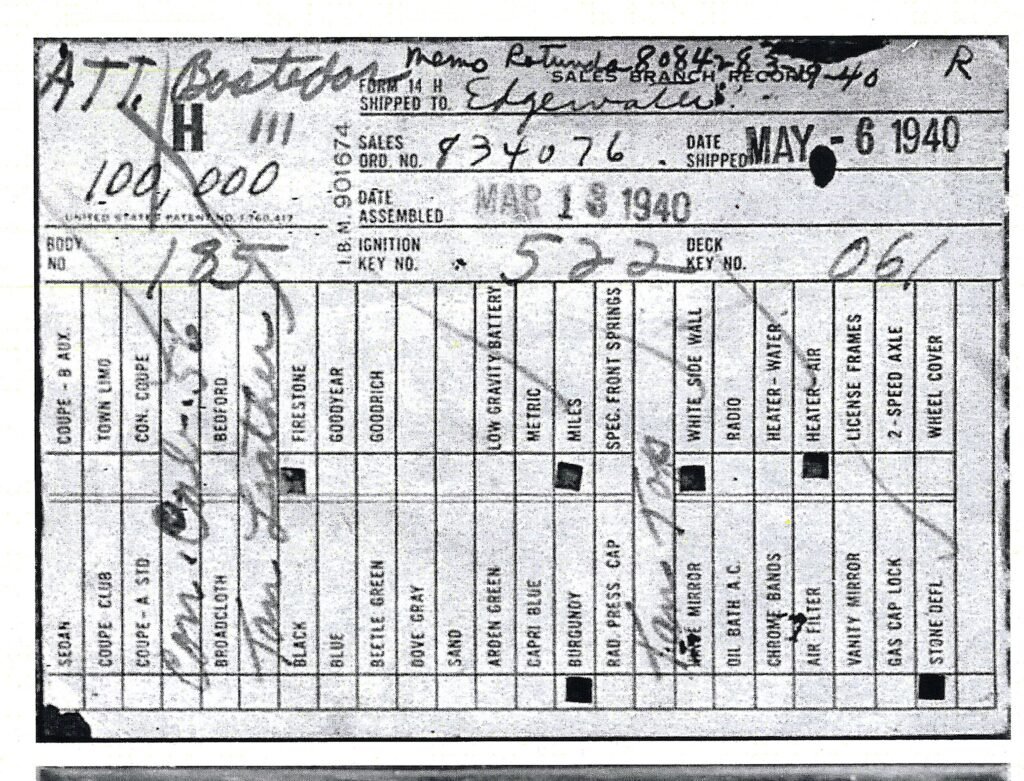 ATT. Bostedor Memo Rotunda 80842 8 3-19-40 R
SALES BRANCH RECORD
FORM 14 H
SHIPPED TO. Edgewater
H 111
SALES ORD. NO. 834076 . DATE SHIPPED MAY - 6 1940
100,000
I.B.M. 901674
DATE ASSEMBLED MAR 13 1940
UNITED STATES PATENT NO. 1,760,417
BODY NO. 185 IGNITION KEY NO. 522 DECK KEY NO. 061
COUPE - B AUX.
TOWN LIMO
CON. COUPE
BEDFORD
FIRESTONE
GOODYEAR
GOODRICH
LOW GRAVITY BATTERY
METRIC
MILES
SPEC. FRONT SPRINGS
WHITE SIDE WALL
RADIO
HEATER - WATER
HEATER - AIR
LICENSE FRAMES
2 - SPEED AXLE
WHEEL COVER
SEDAN
COUPE CLUB
COUPE - A STD
Con. 56
BROADCLOTH
Tan Leather
BLACK
BLUE
BEETLE GREEN
DOVE GRAY
SAND
ARDEN GREEN
CAPRI BLUE
BURGUNDY
RAD PRESS. CAP
Tan Top
MIRROR
OIL BATH A.C.
CHROME BANDS
AIR FILTER
VANITY MIRROR
GAS CAP LOCK
STONE DEFL.